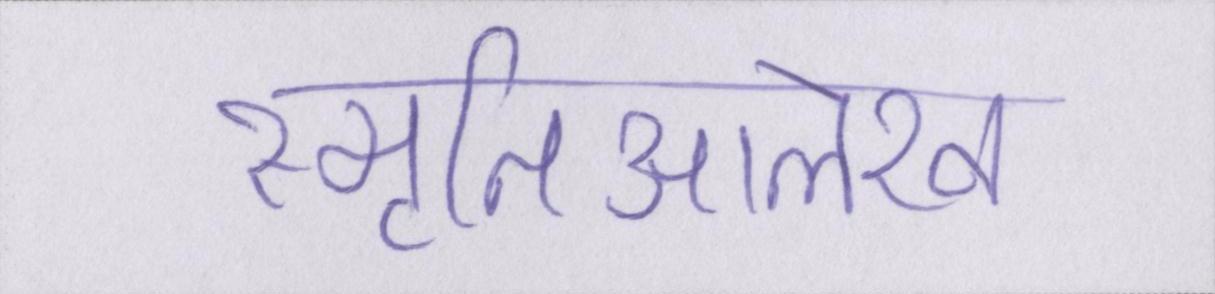 स्मृतिआलेख